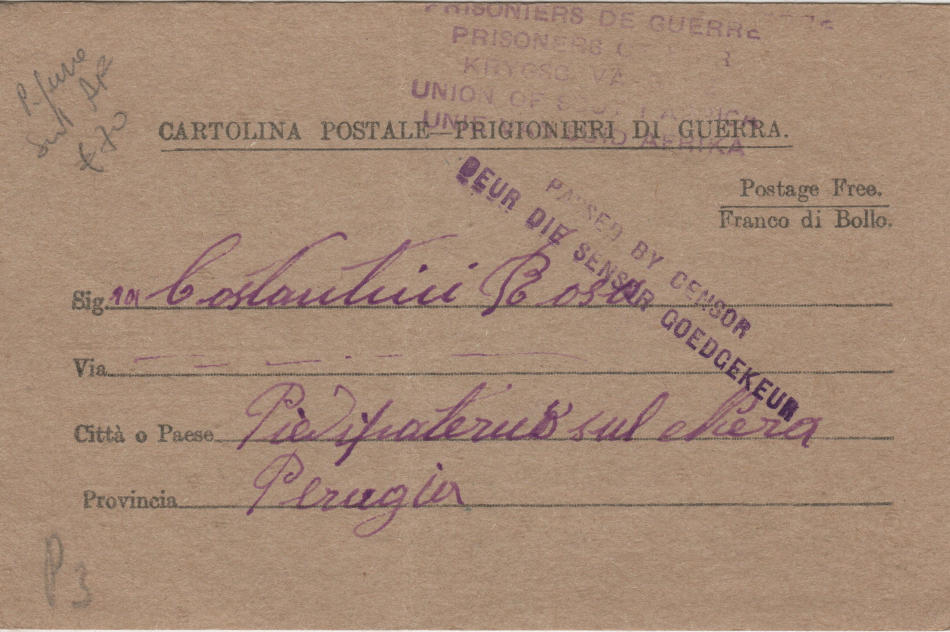 PRISONIERS DE GUERRE
PRISONERS
KRYGSG VA
UNION OF SOUTH AFRICA
UNIE VAN SUID AFRIKA
CARTOLINA POSTALE—PRIGIONIERI DI GUERRA.
Postage Free.
Franco di Bollo.
PASSED BY CENSOR
DEUR DIE SENSOR GOEDGEKEUR
Sig.ra Costantini Rosa
Via
Città o Paese Piedipaterno sul Nera
Provincia Perugia
P3